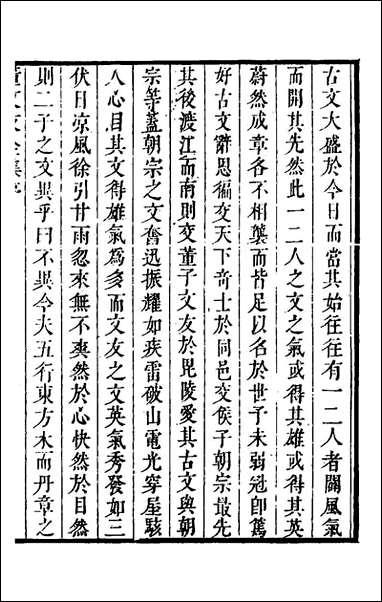 古文大盛於今日而當其始往往有一二人者闢風氣
而開其先然此一二人之文之氣或得其雄或得其英
蔚然成章各不相襲而皆足以名於世予未弱冠卽篤
好古文辭思徧交天下奇士於同邑交侯子朝宗最先
其後渡江而南則交董子文友於毘陵愛其古文與朝
宗等蓋朝宗之文奮迅振耀如疾雷破山電光穿屋駭
人心目其文得雄氣為多而文友之文英氣秀發如三
伏日凉風徐引甘雨忽來無不爽然於心快然於目然
則二子之文異乎曰不異今夫五行東方木而丹章之
董文友全集序